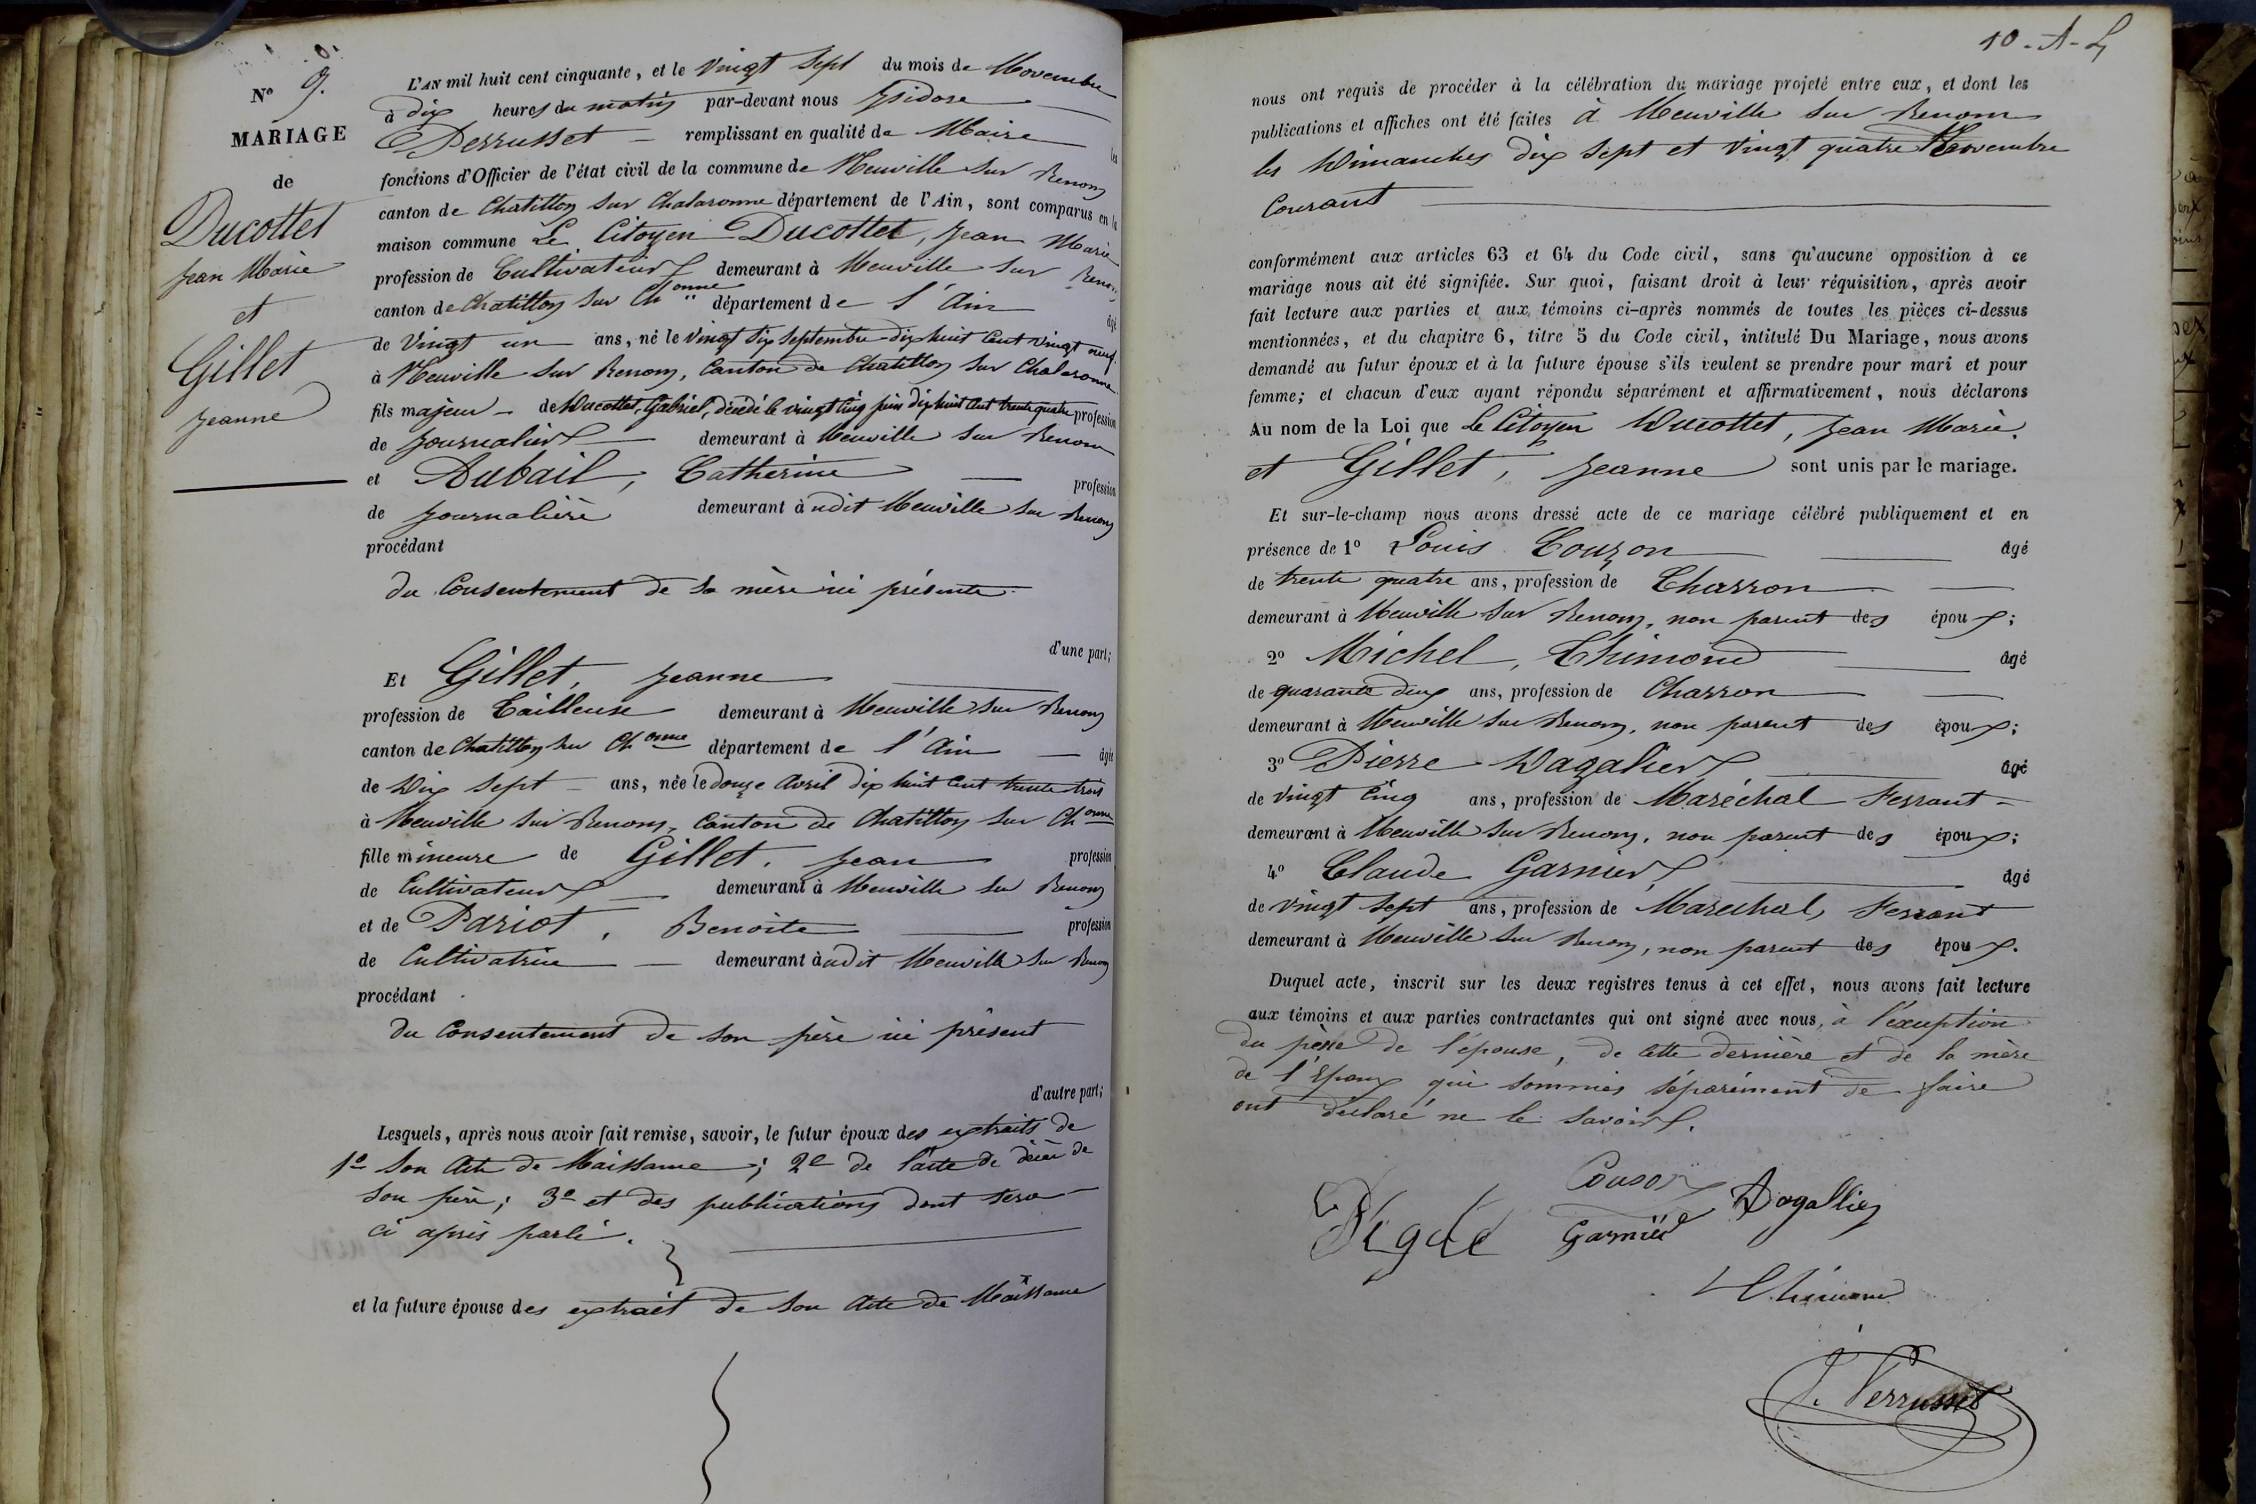 N° 9.
MARIAGE
de
Ducottet
Jean Marie
et
Gillet
Jeanne
L'AN mil huit cent cinquante, et le vingt sept du mois de Novembre
à dix heures du matin par-devant nous Isidore
Perrusset remplissant en qualité de Maire les
fonctions d'Officier de l'état civil de la commune de Neuville sur Renom
canton de Chatillon sur Chalaronne département de l'Ain, sont comparus en la
maison commune Le Citoyen Ducottet, Jean Marie
profession de Cultivateur demeurant à Neuville sur Renom
canton de Chatillon sur Ch onne département de l'Ain âgé
de Vingt un ans, né le vingt six septembre dix huit cent vingt neuf
à Neuville sur Renom, Canton de Chatillon sur Chalaronne
fils majeur de Ducottet, Gabriel, décédé le vingt cinq juin dix huit cent trente quatre profession
de Journalier demeurant à Neuville sur Renom
et Dubail, Catherine profession
de Journalière demeurant à udit Neuville sur Renom
procédant
du Consentement de sa mère ici présente
d'une part;
Et Gillet, Jeanne
profession de Tailleuse demeurant à Neuville sur Renom
canton de Chatillon sur Ch onne département de l'Ain âgée
de Dix sept ans, née le douze Avril dix huit cent trente trois
à Neuville sur Renom, Canton de Chatillon sur Ch onne
fille mineure de Gillet, Jean profession
de Cultivateur demeurant à Neuville sur Renom
et de Pariot, Benoite profession
de Cultivatrice demeurant àudit Neuville sur Renom
procédant
du Consentement de son père ici présent
d'autre part;
Lesquels, après nous avoir fait remise, savoir, le futur époux des extraits de
1° Son Acte de Naissance; 2° de l'acte de décès de
son père; 3° et des publications dont sera
ci après parlé.
et la future épouse des extrait de son Acte de Naissance
10 - A - L
nous ont requis de procéder à la célébration du mariage projeté entre eux, et dont les
publications et affiches ont été faites à Neuville sur Renom
les Dimanches dix sept et vingt quatre Novembre
Courant
conformément aux articles 63 et 64 du Code civil, sans qu'aucune opposition à ce
mariage nous ait été signifiée. Sur quoi, faisant droit à leur réquisition, après avoir
fait lecture aux parties et aux témoins ci-après nommés de toutes les pièces ci-dessus
mentionnées, et du chapitre 6, titre 5 du Code civil, intitulé Du Mariage, nous avons
demandé au futur époux et à la future épouse s'ils veulent se prendre pour mari et pour
femme; et chacun d'eux ayant répondu séparément et affirmativement, nous déclarons
Au nom de la Loi que Le Citoyen Ducottet, Jean Marie,
et Gillet, Jeanne sont unis par le mariage.
Et sur-le-champ nous avons dressé acte de ce mariage célébré publiquement et en
présence de 1° Louis Couzon âgé
de trente quatre ans, profession de Charron
demeurant à Neuville sur Renom, non parent des époux;
2° Michel, Thimond âgé
de quarante deux ans, profession de Charron
demeurant à Neuville sur Renom, non parent des époux;
3° Pierre Dagalier âgé
de vingt cinq ans, profession de Maréchal Ferrant
demeurant à Neuville sur Renom, non parent des époux;
4° Claude Garnier, âgé
de vingt sept ans, profession de Maréchal Ferrant
demeurant à Neuville sur Renom, non parent des époux.
Duquel acte, inscrit sur les deux registres tenus à cet effet, nous avons fait lecture
aux témoins et aux parties contractantes qui ont signé avec nous, à l'exception
du père de l'épouse, de cette dernière et de la mère
de l'Epoux qui sommés séparément de faire
ont déclaré ne le savoir.
Couson
Dagallier
Garnier
Thimond
I. Perrusset